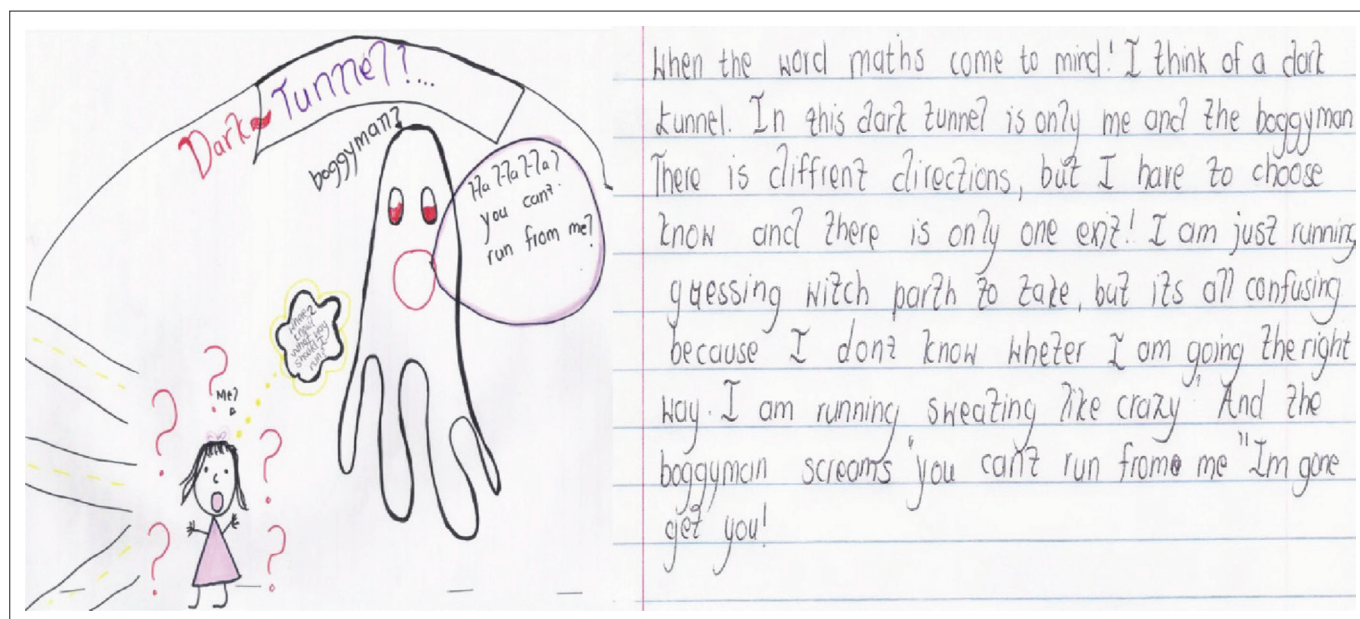 Dark Tunnel?...
boggyman?
Ha Ha Ha?
you cant.
run from me?
what way
should I
run?
Me?
When the word maths come to mind! I think of a dark
tunnel. In this dark tunnel is only me and the boggyman
There is diffrent directions, but I have to choose
know and there is only one exit! I am just running
guessing witch parth to take, but its all confusing
because I dont know wheter I am going the right
way. I am running sweating like crazy! And the
boggyman screams "you can't run from me" I'm gone
get you!